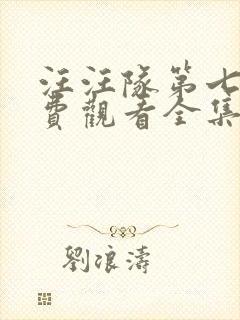 汪汪隊第七
費觀看全集
劉浪濤